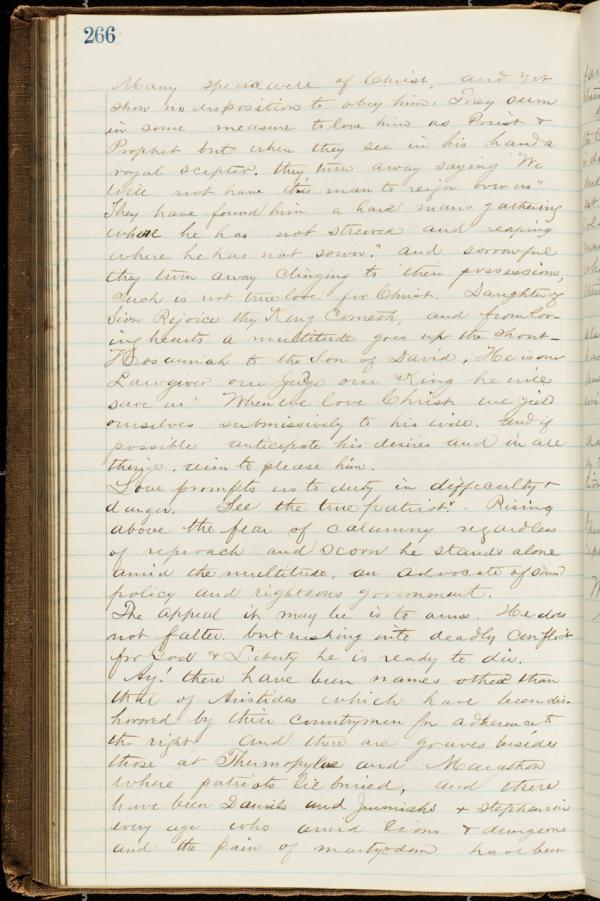 266
Many speak well of Christ, and yet
show no disposition to obey him. They seem
in some measure to love him as Priest &
Prophet but when they see in his hand a
royal scepter. they turn away saying "We
will not have this man to reign over us"
They have found him a hard mans gathering
where he has not strewed and reaping
where he has not sown." and sorrowful
they turn away clinging to their possessions,
Such is not true love for Christ. Daughter of
Zion Rejoice thy King Cometh, and from lov-
ing hearts a multitude goes up the shout—
Hosannah to the Son of David, He is our
Lawgiver our Judge our King he will
save us." When we love Christ we yield
ourselves submissively to his will. and if
possible anticipate his desires and in all
things, aim to please him.
Love prompts us to duty in difficulty &
danger. See the true patriot. Rising
above the fear of calumny regardless
of reproach and scorn he stands alone
amid the multitude, an advocate of sound
policy and righteous government.
The appeal it may be is to arms. He does
not falter. but rushing into deadly conflict
for God & Liberty he is ready to die.
Ay! there have been names other than
that of Aristides which have been dis-
honored by their countrymen for adherence to
the right and there are graves besides
those at Thermopylae and Marathon
where patriots lie buried, and there
have been Daniels and Jeremiahs & Stephens in
every age who amid lions & dungeons
and the pain of martyrdom have been